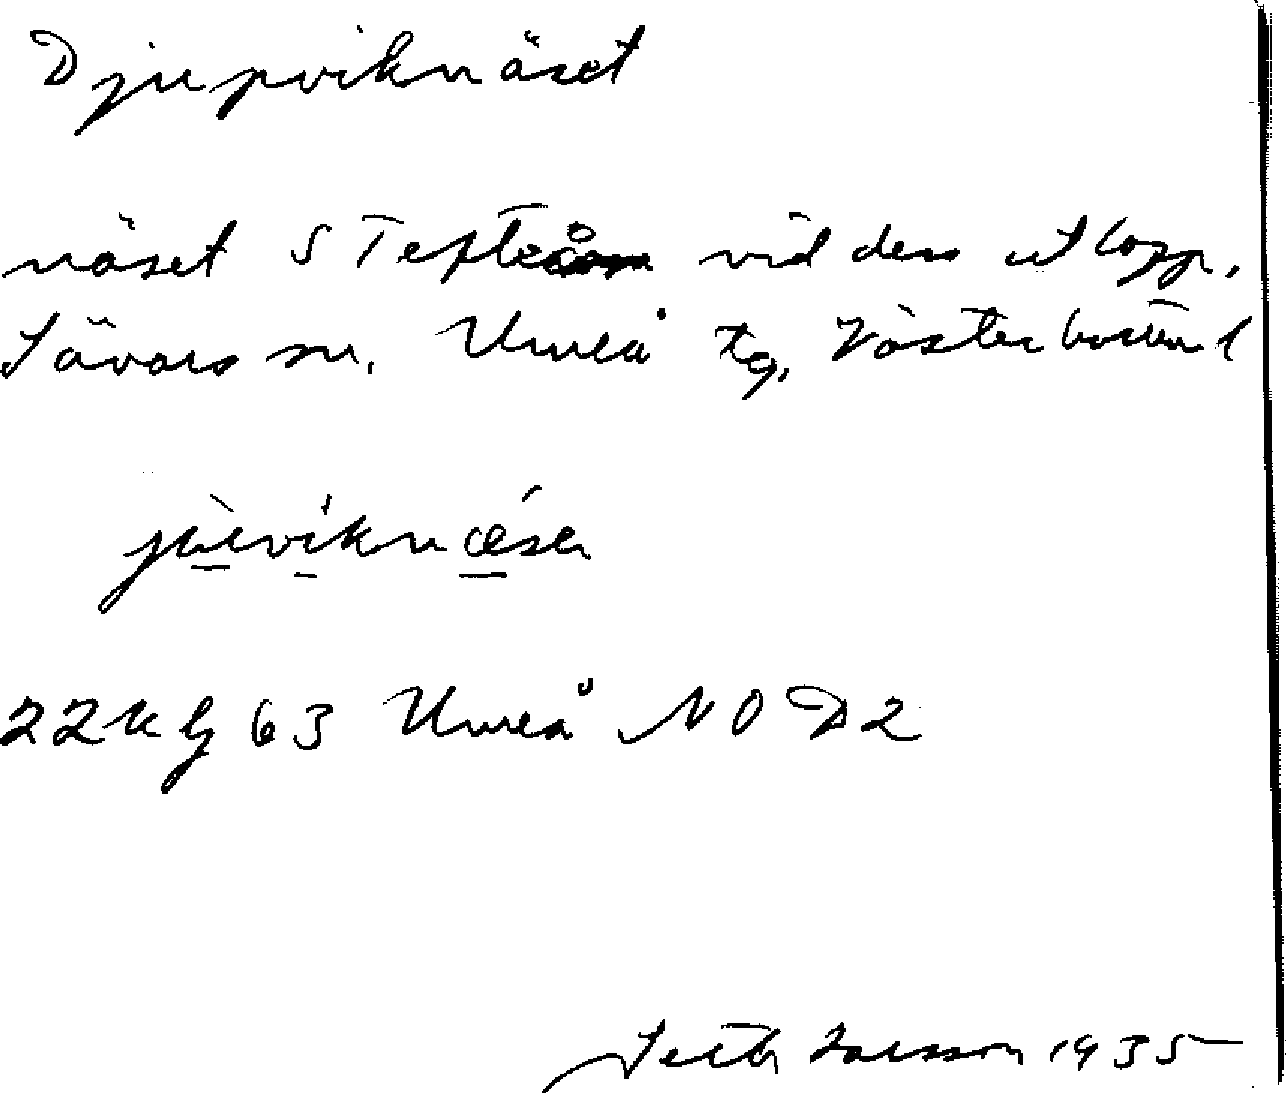 Djupviknäset
näset S Tefteån vid dess utlopp.
Sävars sn. Umeå tg. Västerbottens l
22 K lj 63 Umeå NO D2
Seth Larsson 1935